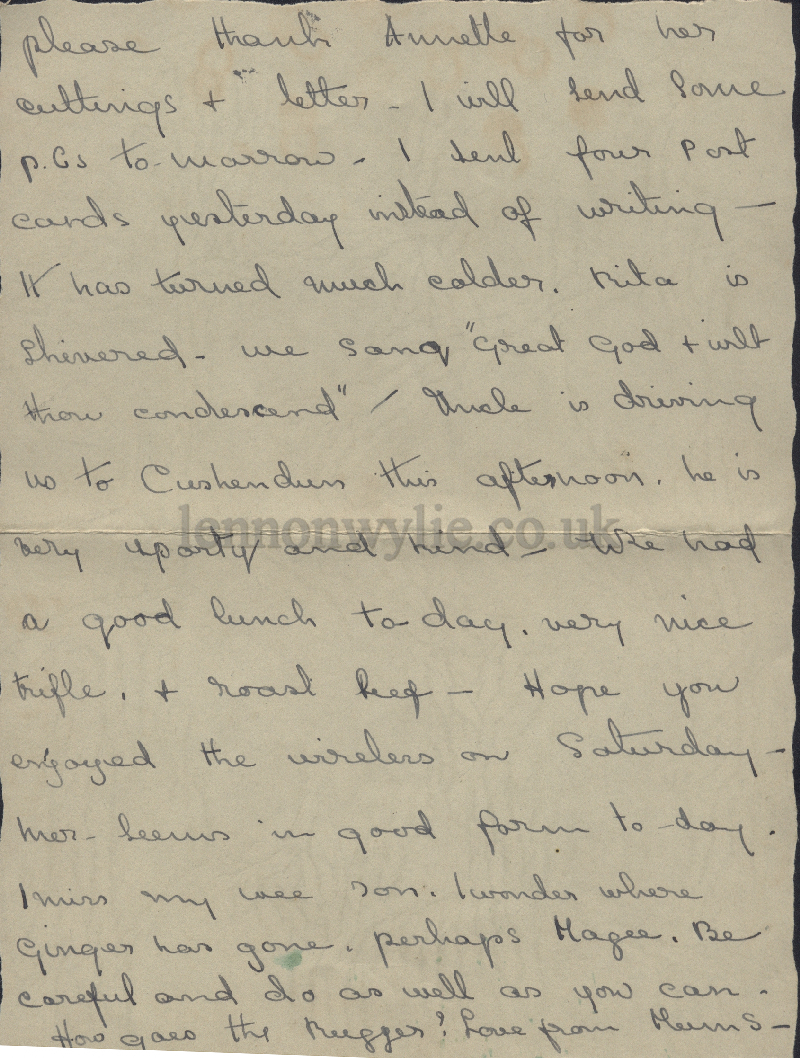 please thank Annette for her
cuttings + letter - I will send some
p.Cs to-morrow - I sent four Post
cards yesterday instead of writing -
It has turned much colder. Rita is
shivered - we sang "Great God + wilt
thou condescend" / Uncle is driving
us to Cushendun this afternoon. he is
lennonwylie.co.uk
very sporty and kind - We had
a good lunch to-day. very nice
trifle. + roast beef - Hope you
enjoyed the wireless on Saturday -
seems in good form to-day.
I miss my wee son. I wonder where
Ginger has gone. perhaps Magee. Be
careful and do as well as you can.
How goes the Rugger? Love from Mums -